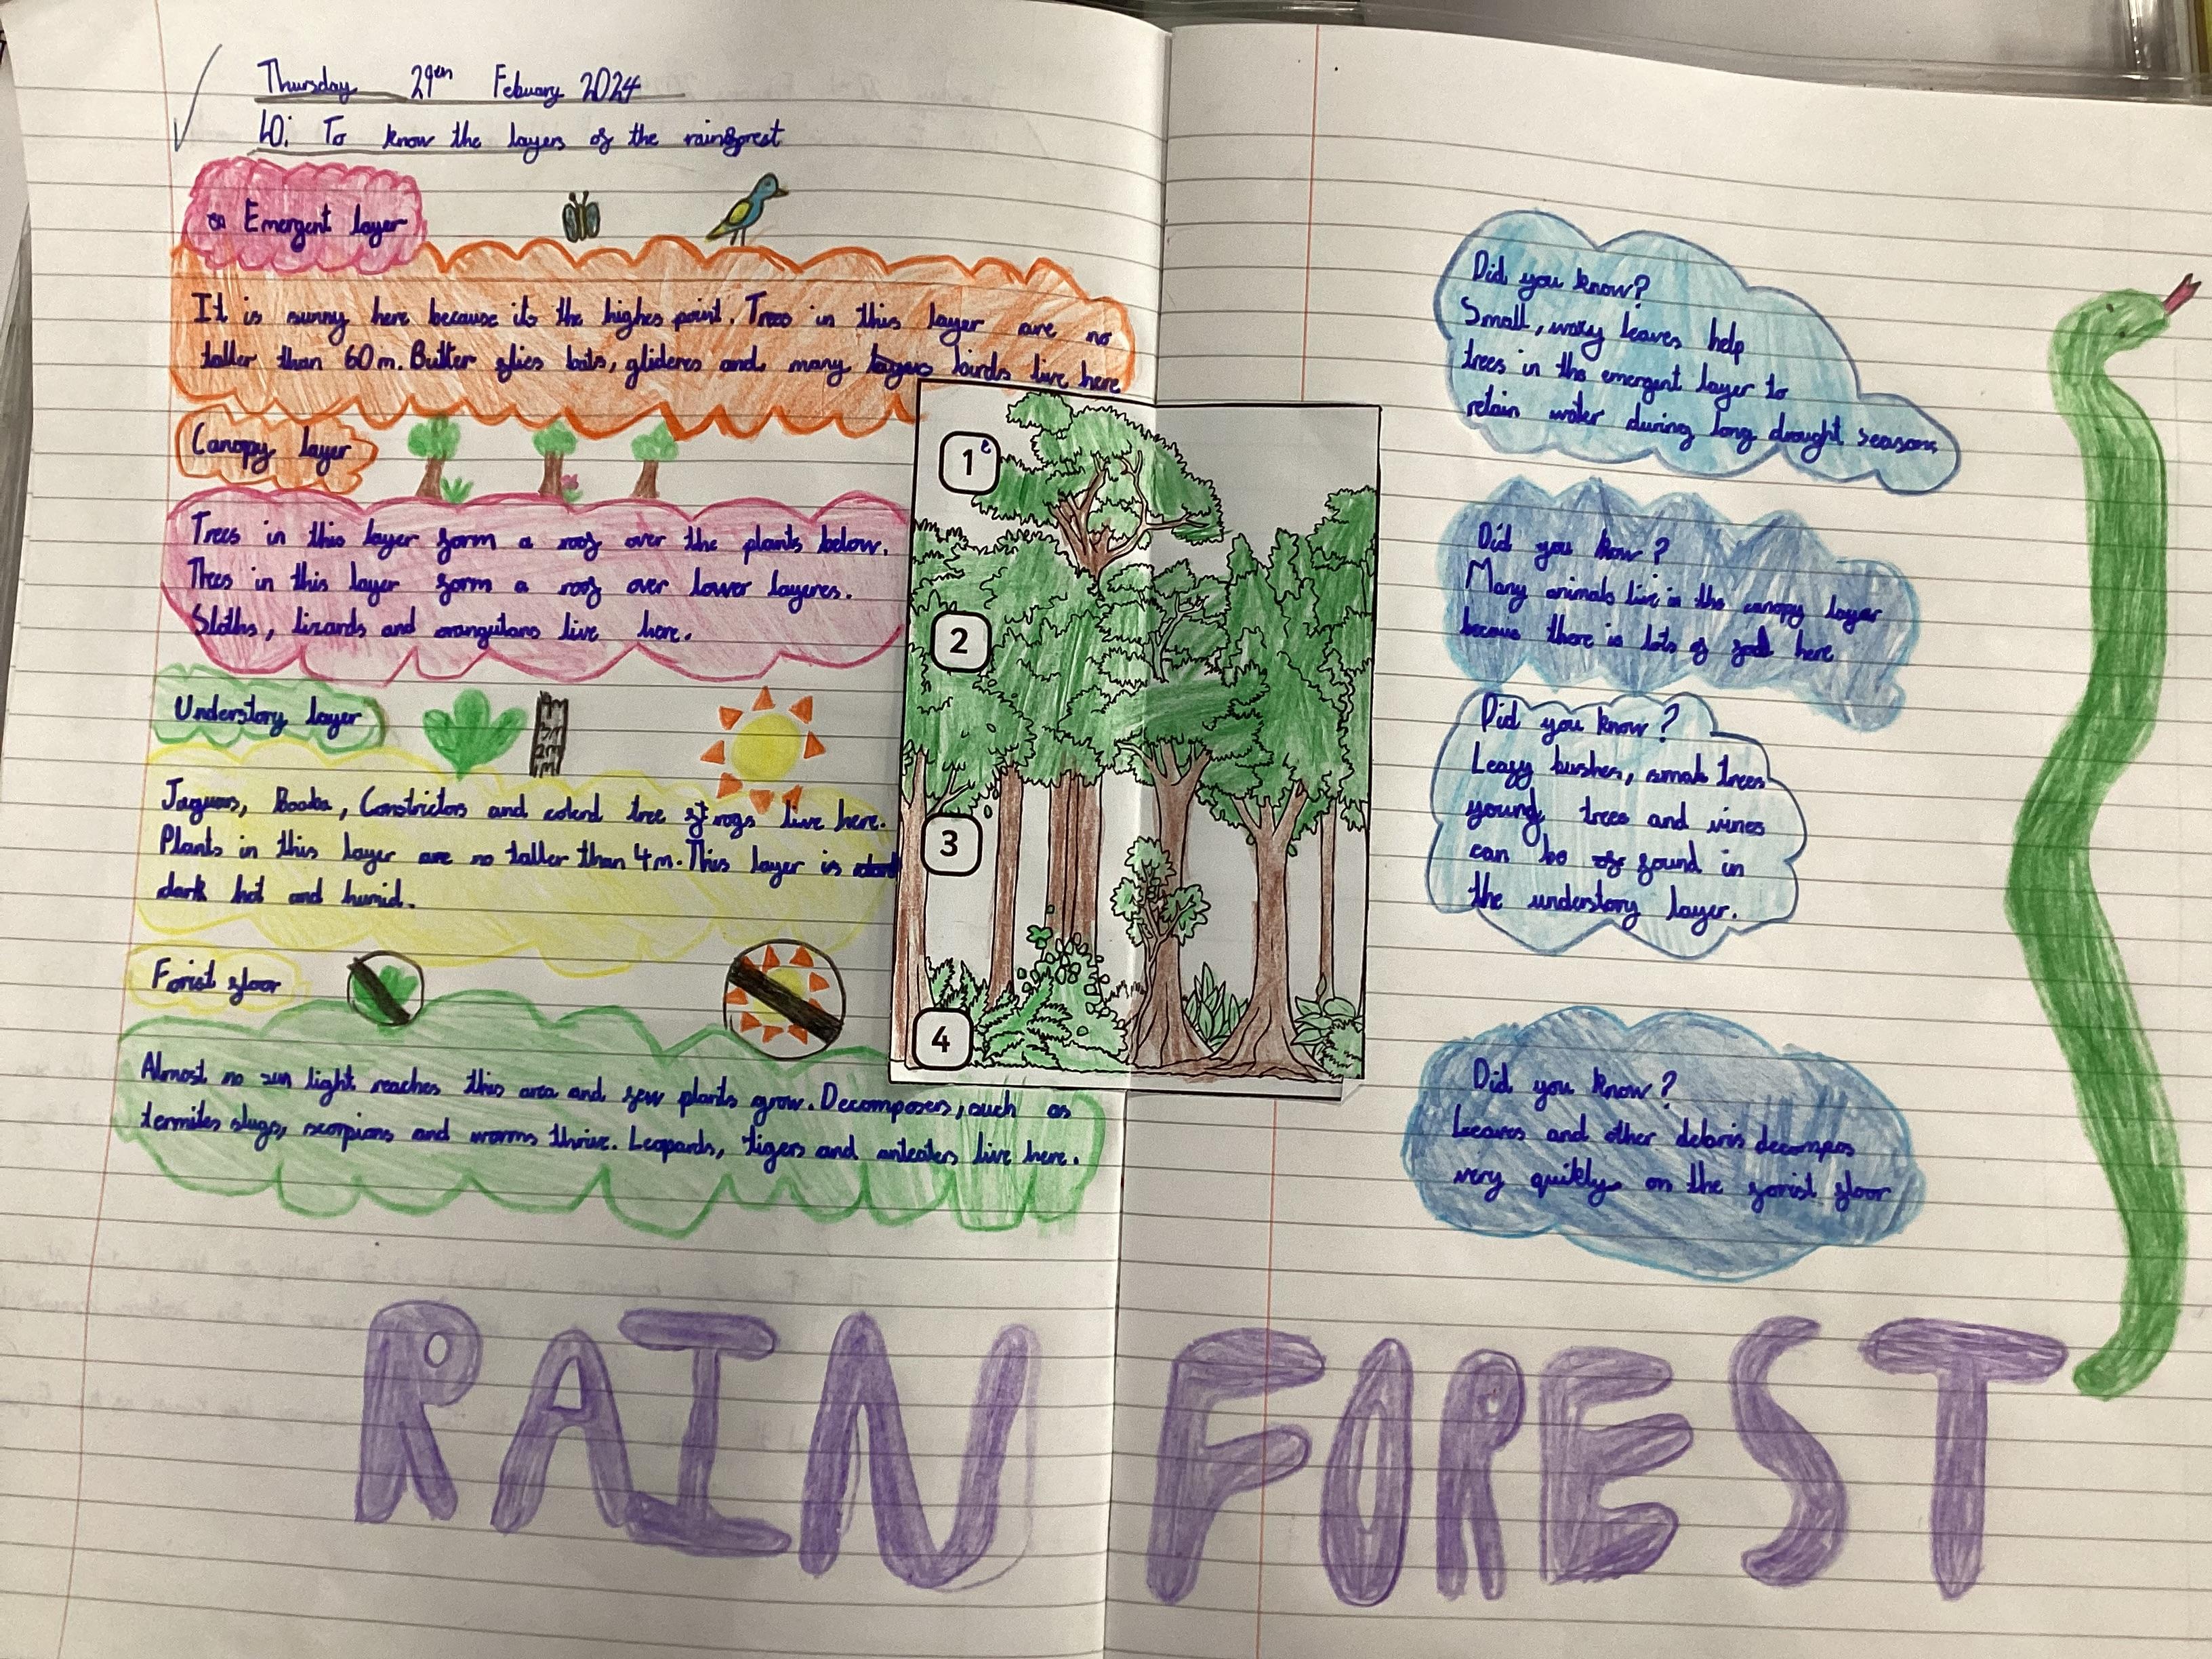 Thursday 29th Febuary 2024
LO: To know the layers of the rainforest
Emergent layer
It is sunny here because its the highes point. Trees in this layer are no
taller than 60m. Butter flies bats, glideres and many birds live here
Canopy layer
Trees in this layer form a roof over the plants below.
Trees in this layer form a roof over lower layeres.
Sloths, lizards and orangutans live here.
Understory layer
Jaguars, Booba, Constrictors and colerd tree frogs live here.
Plants in this layer are no taller than 4m. This layer is
dark hot and humid.
Forist floor
Almost no sun light reaches this area and few plants grow. Decomposers, such as
termites slugs, scorpions and worms thrive. Leopards, tigers and anteaters live here.
1
2
3
4
Did you know?
Small, waxy leaves help
trees in the emergent layer to
retain water during long drought seasons
Did you know?
Many animals live in the canopy layer
becaus there is lots of food here
Did you know?
Leafy bushes, small trees
young trees and vines
can be found in
the understory layer.
Did you know?
Leaves and other debris decompos
very quikly on the forist floor
RAIN FOREST